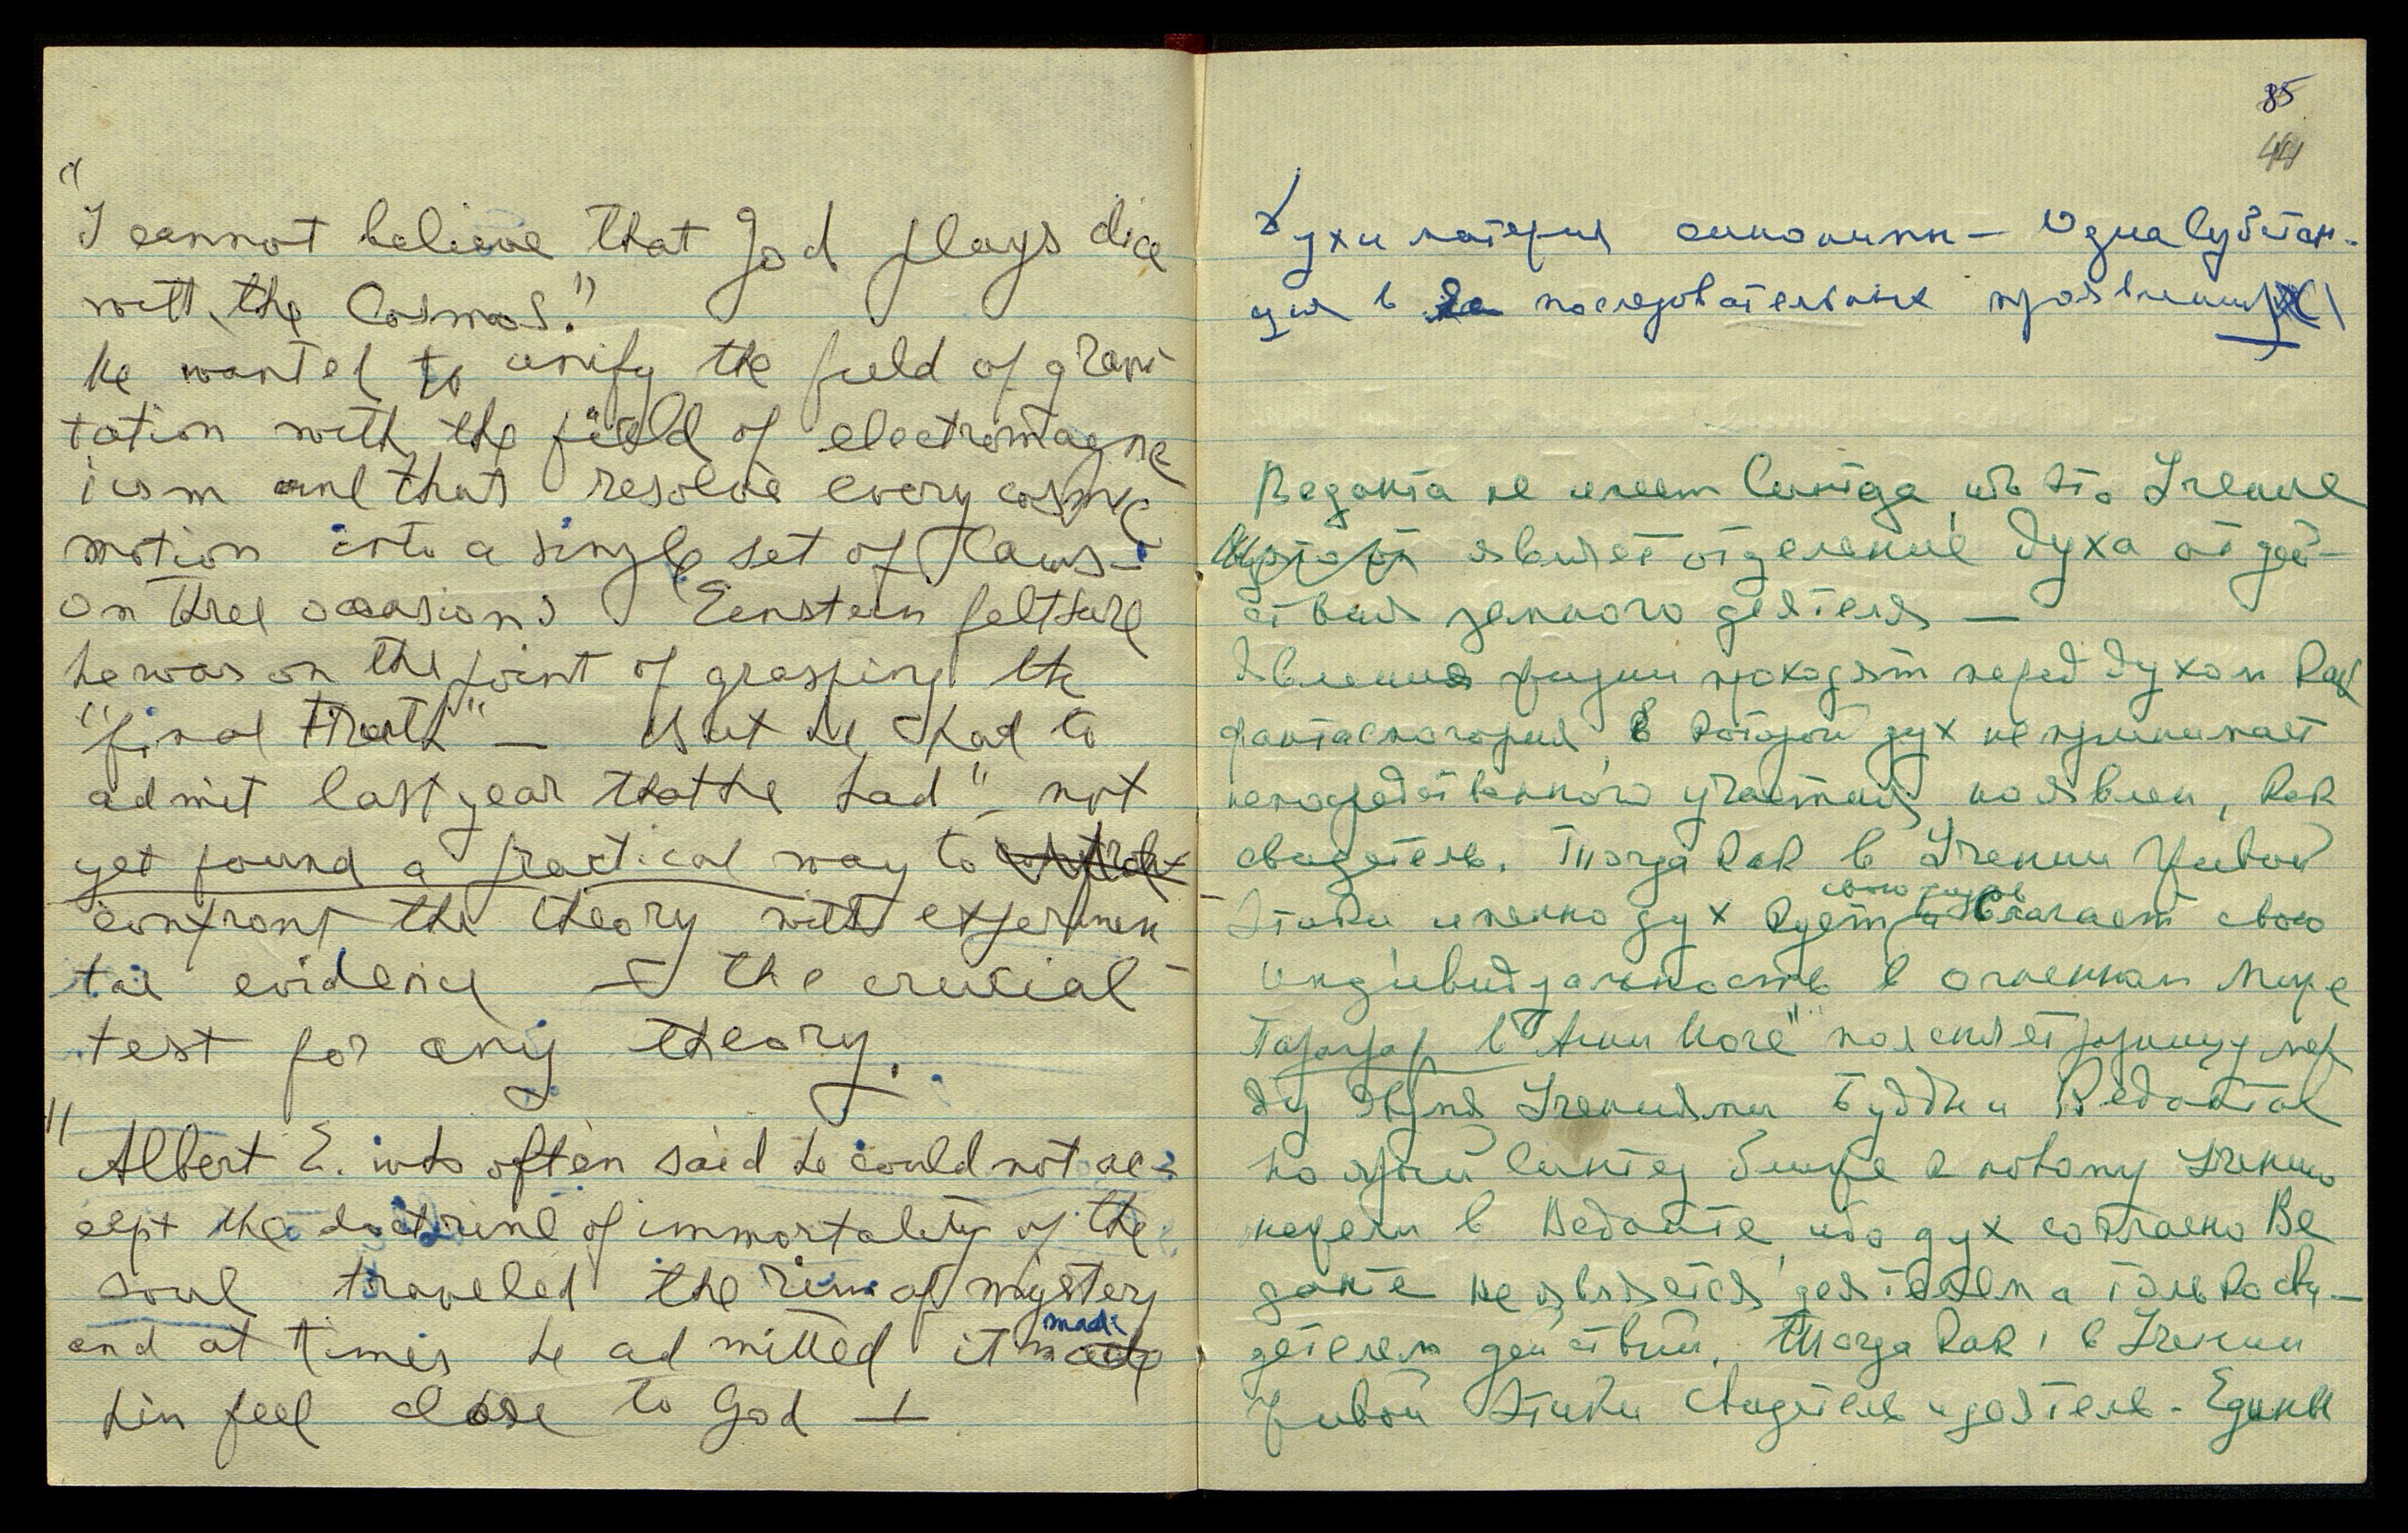 "I cannot believe that God plays dice
with the Cosmos."
he wanted to unify the field of gravi
tation with the field of electromagne
ism and that resolve every cosmic
motion into a single set of laws —
on three occasions Einstein felt sure
he was on the point of grasping the
"final Truth" — But he had to
admit last year that he had "not
yet found a practical way to
confront the theory with experimen
tal evidence — the crucial
test for any theory.
"Albert E. who often said he could not ac-
cept the doctrine of immortality of the
soul traveled the rim of mystery
and at times he admitted it made
him feel close to God —
85
44
Дух и материя синонимы — Одна Субстан-
ция в последовательных проявлениях
Веданта не имеет Синтеза, ибо это Учение
являет отделение духа от дей-
ствия земного деятеля —
Явления жизни проходят перед духом как
фантасмагория, в которой дух не принимает
непосредственного участия, но явлен, как
свидетель. Тогда как в Учении Живой
Этики именно дух кует и слагает свою
индивидуальность в огненном Мире
в "Агни Йоге" поясняет разницу меж
ду двумя Учениями Будды и Ведантой
но синтез ближе к новому Учению
нежели в Веданте, ибо дух согласно Ве
данте не является деятелем а только сви-
детелем действий. Тогда как, в Учении
Живой Этики Свидетель и деятель — Едины